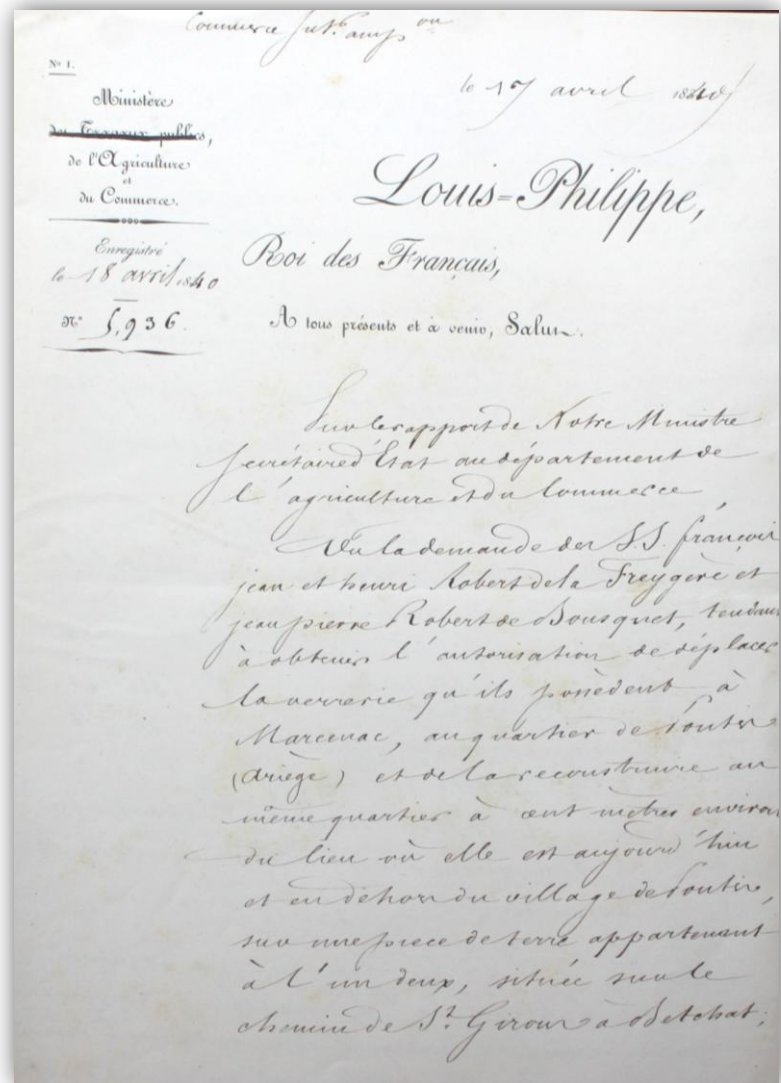 Commerce Int.r
le 17 avril 1840
No 1.
Ministère
des Travaux publics,
de l'Agriculture
et
du Commerce.
Enregistré
le 18 avril 1840
No 5,936.
Louis=Philippe,
Roi des Français,
A tous présents et à venir, Salut.
Sur le rapport de Notre Ministre
secrétaire d'État au département de
l'agriculture et du Commerce
Vu la demande des S.S. françois
jean et henri Robert de la Freygère et
jean pierre Robert de Bousquet, tendant
à obtenir l'autorisation de déplacer
la verrerie qu'ils possèdent à
Marcenac, au quartier de Poutis
(Ariège) et de la reconstruire au
même quartier à cent mètres environ
du lieu où elle est aujourd'hui
et en dehors du village de Poutis,
sur une pièce de terre appartenant
à l'un deux, située sur le
chemin de St. Girons à Betchat;